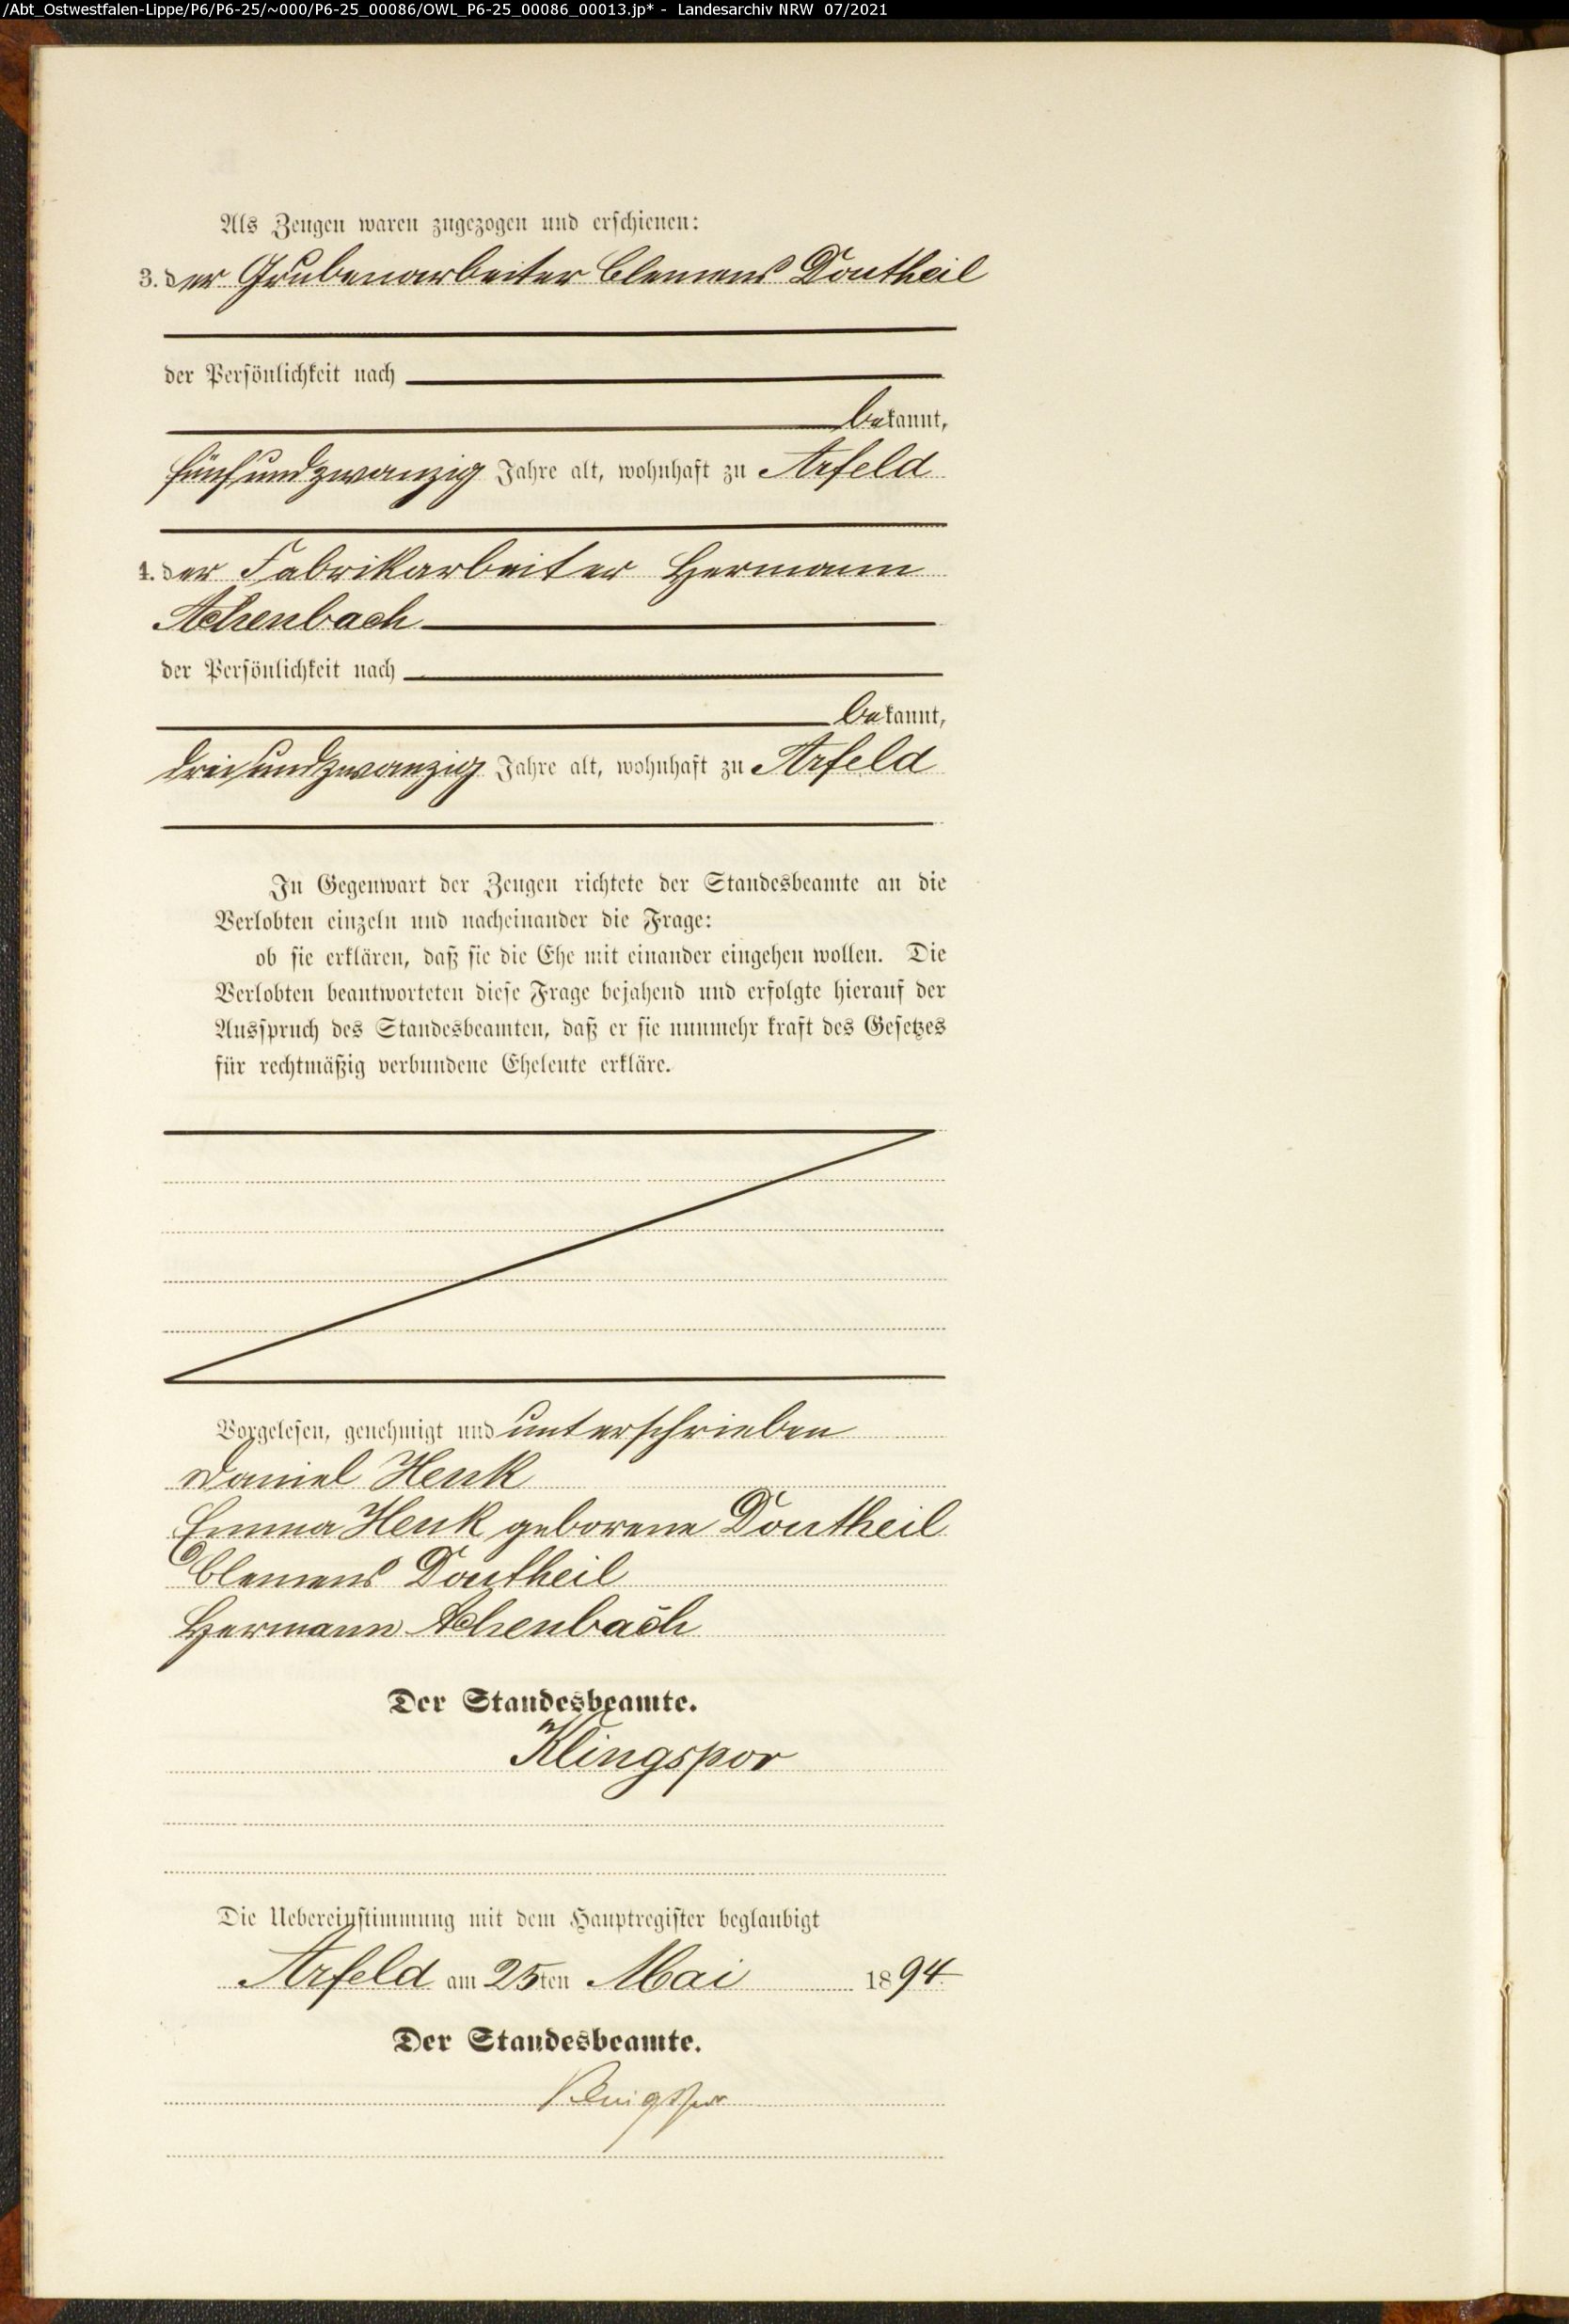 /Abt_Ostwestfalen-Lippe/P6/P6-25/~000/P6-25_00086/OWL_P6-25_00086_00013.jp* - Landesarchiv NRW 07/2021
Als Zeugen waren zugezogen und erschienen:
3. der Grubenarbeiter Clemens Doutheil
der Persönlichkeit nach
bekannt,
fünfundzwanzig Jahre alt, wohnhaft zu Arfeld
4. der Fabrikarbeiter Hermann
Achenbach
der Persönlichkeit nach
bekannt,
dreiundzwanzig Jahre alt, wohnhaft zu Arfeld
In Gegenwart der Zeugen richtete der Standesbeamte an die
Verlobten einzeln und nacheinander die Frage:
ob sie erklären, daß sie die Ehe mit einander eingehen wollen. Die
Verlobten beantworteten diese Frage bejahend und erfolgte hierauf der
Ausspruch des Standesbeamten, daß er sie nunmehr kraft des Gesetzes
für rechtmäßig verbundene Eheleute erkläre.
Vorgelesen, genehmigt und unterschrieben
Daniel Henk
Emma Henk geborene Doutheil
Clemens Doutheil
Hermann Achenbach
Der Standesbeamte.
Klingspor
Die Uebereinstimmung mit dem Hauptregister beglaubigt
Arfeld am 25ten Mai 1894
Der Standesbeamte.
Klingspor